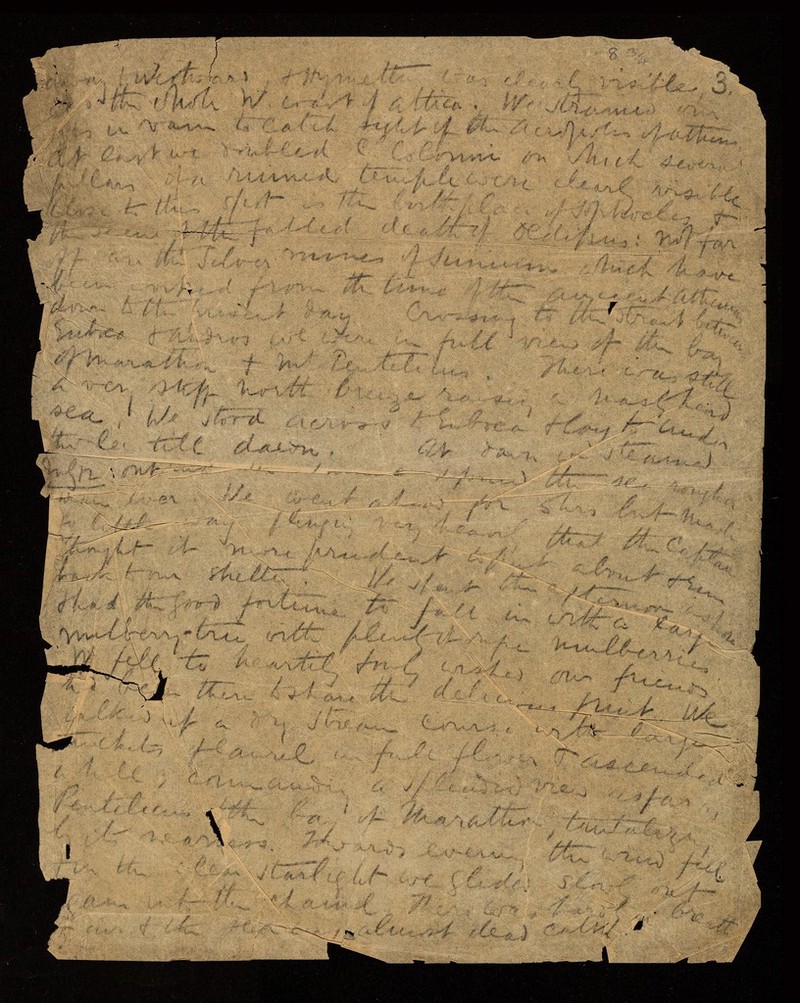 8 3/4
3.
away westward, & Hymettus was clearly visible,
as the whole W. coast of Attica. We strained our
eyes in vain to catch sight of the Acropolis of Athens
At last we doubled C. Colonni on which several
pillars of a ruined temple were clearly visible
Close to this spot is the birthplace of Sophocles &
the scene of the fabled death of Oedipus: not far
off are the Silver mines of Sunium which have
been worked from the time of the ancient Athenians
down to the present day Crossing to the Strait between
Euboea & Andros we were in full view of the bay
of Marathon & Mt Pentelicus. There was still
a very stiff north breeze raising a nasty hard
sea. We stood across to Euboea & lay to under
the lee till dawn. At dawn we steamed
out and found the sea rougher
than ever. We went ahead for 5 hrs but made
so little way plunging very heavily that the Captain
thought it more prudent to put about & run
back to our shelter. We spent the afternoon ashore
& had the good fortune to fall in with a large
mulberry-tree with plenty of ripe mulberries.
We fell to heartily & only wished our friends
had been there to share the delicious fruit. We
walked up a dry stream course with large
thickets of laurel in full flower & ascended
a hill, commanding a splendid view as far as
Pentelicus & the bay of Marathon, tantalizing
by its nearness. Towards evening the wind fell
& in the clear starlight we glided slowly out
again into the channel. There was hardly a breath
of air & the sea was almost dead calm.